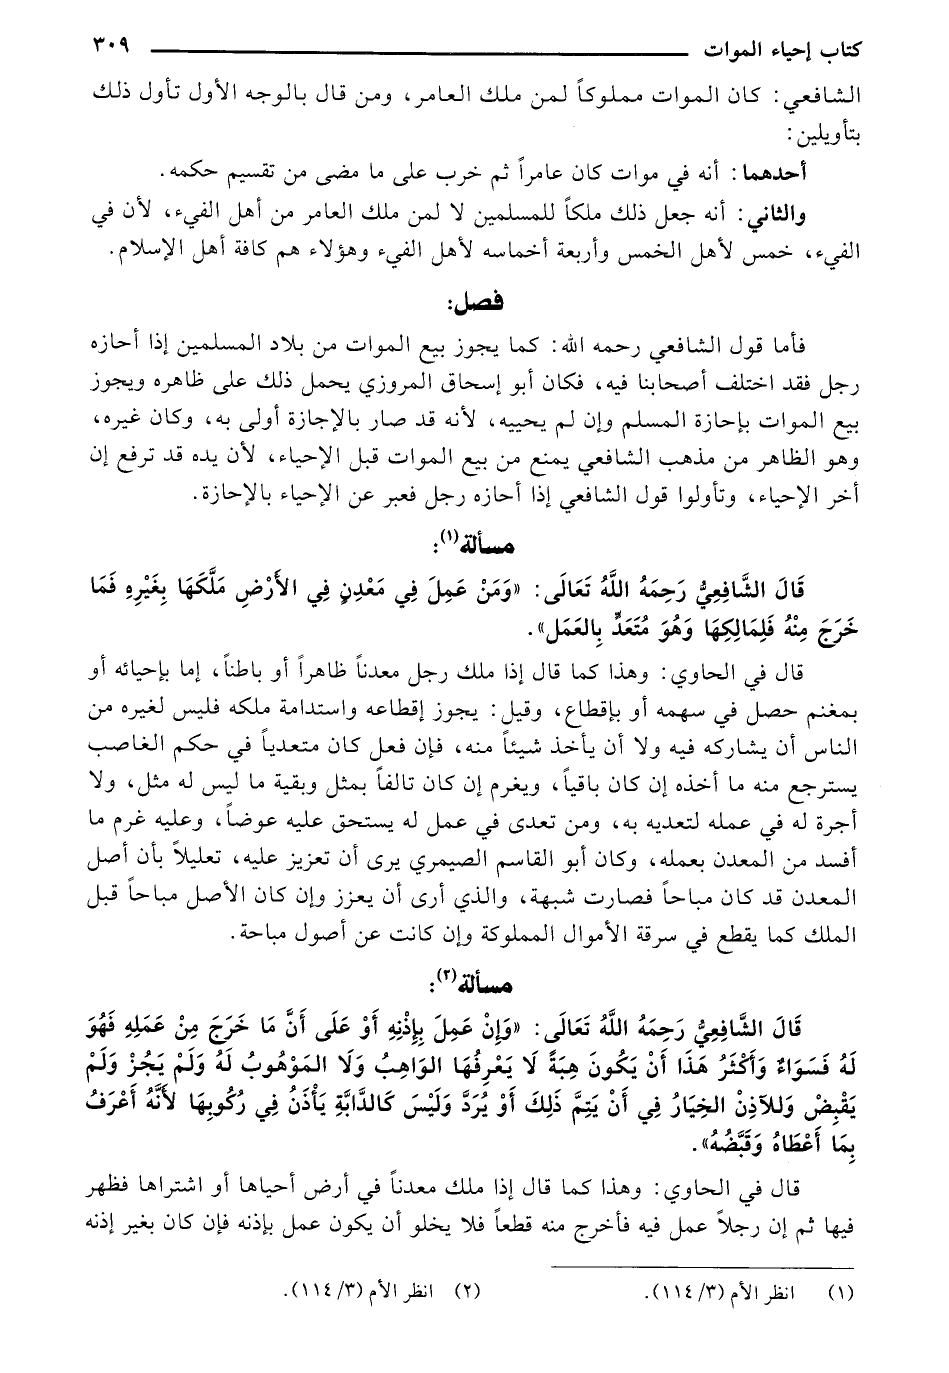 كتاب إحياء الموات ٣٠٩
الشافعي: كان الموات مملوكاً لمن ملك العامر، ومن قال بالوجه الأول تأول ذلك
بتأويلين:
أحدهما: أنه في موات كان عامراً ثم خرب على ما مضى من تقسيم حكمه.
والثاني: أنه جعل ذلك ملكاً للمسلمين لا لمن ملك العامر من أهل الفيء، لأن في
الفيء، خمس لأهل الخمس وأربعة أخماسه لأهل الفيء وهؤلاء هم كافة أهل الإسلام.
فصل:
فأما قول الشافعي رحمه الله: كما يجوز بيع الموات من بلاد المسلمين إذا أحازه
رجل فقد اختلف أصحابنا فيه، فكان أبو إسحاق المروزي يحمل ذلك على ظاهره ويجوز
بيع الموات بإحازة المسلم وإن لم يحييه، لأنه قد صار بالإجازة أولى به، وكان غيره،
وهو الظاهر من مذهب الشافعي يمنع من بيع الموات قبل الإحياء، لأن يده قد ترفع إن
أخر الإحياء، وتأولوا قول الشافعي إذا أحازه رجل فعبر عن الإحياء بالإحازة.
مسألة(١):
قَالَ الشَّافِعِيُّ رَحِمَهُ اللَّهُ تَعَالَى: «وَمَنْ عَمِلَ فِي مَعْدِنٍ فِي الأَرْضِ مَلَّكَهَا بِغَيْرِهِ فَمَا
خَرَجَ مِنْهُ فَلِمَالِكِهَا وَهُوَ مُتَعَدٍّ بِالعَمَلِ».
قال في الحاوي: وهذا كما قال إذا ملك رجل معدناً ظاهراً أو باطناً، إما بإحيائه أو
بمغنم حصل في سهمه أو بإقطاع، وقيل: يجوز إقطاعه واستدامة ملكه فليس لغيره من
الناس أن يشاركه فيه ولا أن يأخذ شيئاً منه، فإن فعل كان متعدياً في حكم الغاصب
يسترجع منه ما أخذه إن كان باقياً، ويغرم إن كان تالفاً بمثل وبقية ما ليس له مثل، ولا
أجرة له في عمله لتعديه به، ومن تعدى في عمل له يستحق عليه عوضاً، وعليه غرم ما
أفسد من المعدن بعمله، وكان أبو القاسم الصيمري يرى أن تعزيز عليه، تعليلاً بأن أصل
المعدن قد كان مباحاً فصارت شبهة، والذي أرى أن يعزز وإن كان الأصل مباحاً قبل
الملك كما يقطع في سرقة الأموال المملوكة وإن كانت عن أصول مباحة.
مسألة(٢):
قَالَ الشَّافِعِيُّ رَحِمَهُ اللَّهُ تَعَالَى: «وَإِنْ عَمِلَ بِإِذْنِهِ أَوْ عَلَى أَنَّ مَا خَرَجَ مِنْ عَمَلِهِ فَهُوَ
لَهُ فَسَوَاءٌ وَأَكْثَرُ هَذَا أَنْ يَكُونَ هِبَةً لَا يَعْرِفُهَا الوَاهِبُ وَلَا المَوْهُوبُ لَهُ وَلَمْ يَجُزْ وَلَمْ
يَقْبِضْ وَللآذِنْ الخِيَارُ فِي أَنْ يَتِمَّ ذَلِكَ أَوْ يُرَدَّ وَلَيْسَ كَالدَّابَّةِ يَأْذَنُ فِي رُكُوبِهَا لأَنَّهُ أَعْرَفُ
بِمَا أَعْطَاهُ وَقَبَّضُهُ».
قال في الحاوي: وهذا كما قال إذا ملك معدناً في أرض أحياها أو اشتراها فظهر
فيها ثم إن رجلاً عمل فيه فأخرج منه قطعاً فلا يخلو أن يكون عمل بإذنه فإن كان بغير إذنه
(١) انظر الأم (٣/ ١١٤). (٢) انظر الأم (٣/ ١١٤).